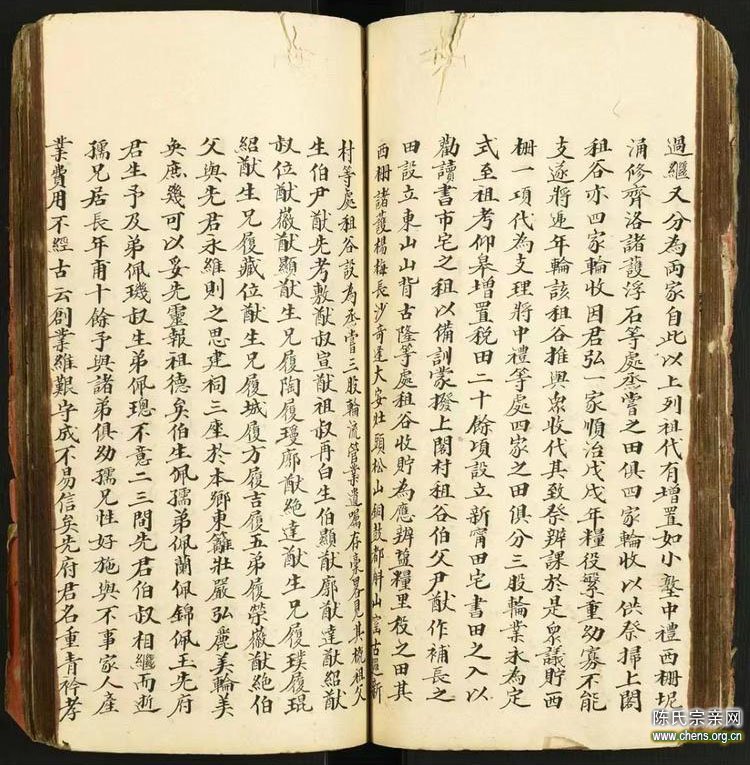 過繼又分為兩家自此以上列祖代有增置如小壟中禮西柵坭
涌修齊洛諸蓢浮石等處烝嘗之田俱四家輪收以供祭掃上閣
租谷亦四家輪收因君弘一家順治戊戌年糧役繁重幼寡不能
支遂將遞年輪該租谷推與衆收代其致祭辦課於是衆議貯西
柵一項代為支理將中禮等處四家之田俱分三股輪業永為定
式至祖考仰皋增置税田二十餘項設立新甯田宅書田之入以
勸讀書市宅之租以備訓蒙撥上閣村租谷伯父尹猷作補長之
田設立東山山背古隆等處租谷收貯為應辦鹽糧里役之田其
西柵諸蓢楊梅長沙奇逢大安灶頭松山銅鼓都斛山窑古邏新
村等處租谷設為烝嘗三股輪流管業遺囑存豪畧見其槪祖父
生伯尹猷先考敷猷叔宣猷祖叔再白生伯顯猷廓猷達猷紹猷
叔位猷徽猷顯猷生兄履陶履璦廓猷絶達猷生兄履璞履琨
紹猷生兄履藏位猷生兄履城履方履吉履五弟履榮徽猷絶伯
父與先君永維則之思建祠三座於本鄉東籬壯嚴弘麗美輪美
奂庶幾可以妥先靈報祖德矣伯生佩孺弟佩蘭佩錦佩玉先府
君生予及弟佩璣叔生弟佩璁不意二三間先君伯叔相繼而逝
孺兄居長年甫十餘予與諸弟俱幼孺兄性好施與不事家人產
業費用不經古云創業維艱守成不易信矣先府君名重青衿孝
陈氏宗亲网
www.chens.org.cn